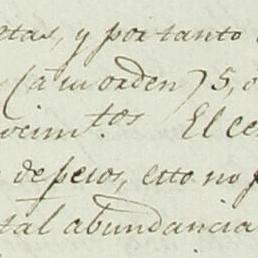 etas, y por tanto
(a su orden) 5, o
ocim.tos El ce
de pesos, esto no p
tal abundancia